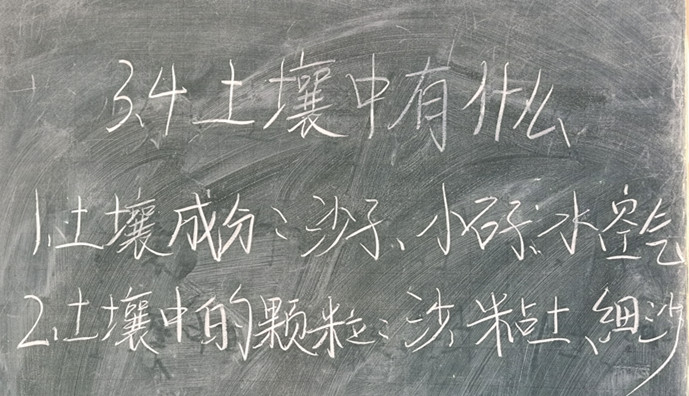 3.4 土壤中有什么
1.土壤成分:沙子、小石子、水空气
2.土壤中的颗粒:沙、粘土、细沙